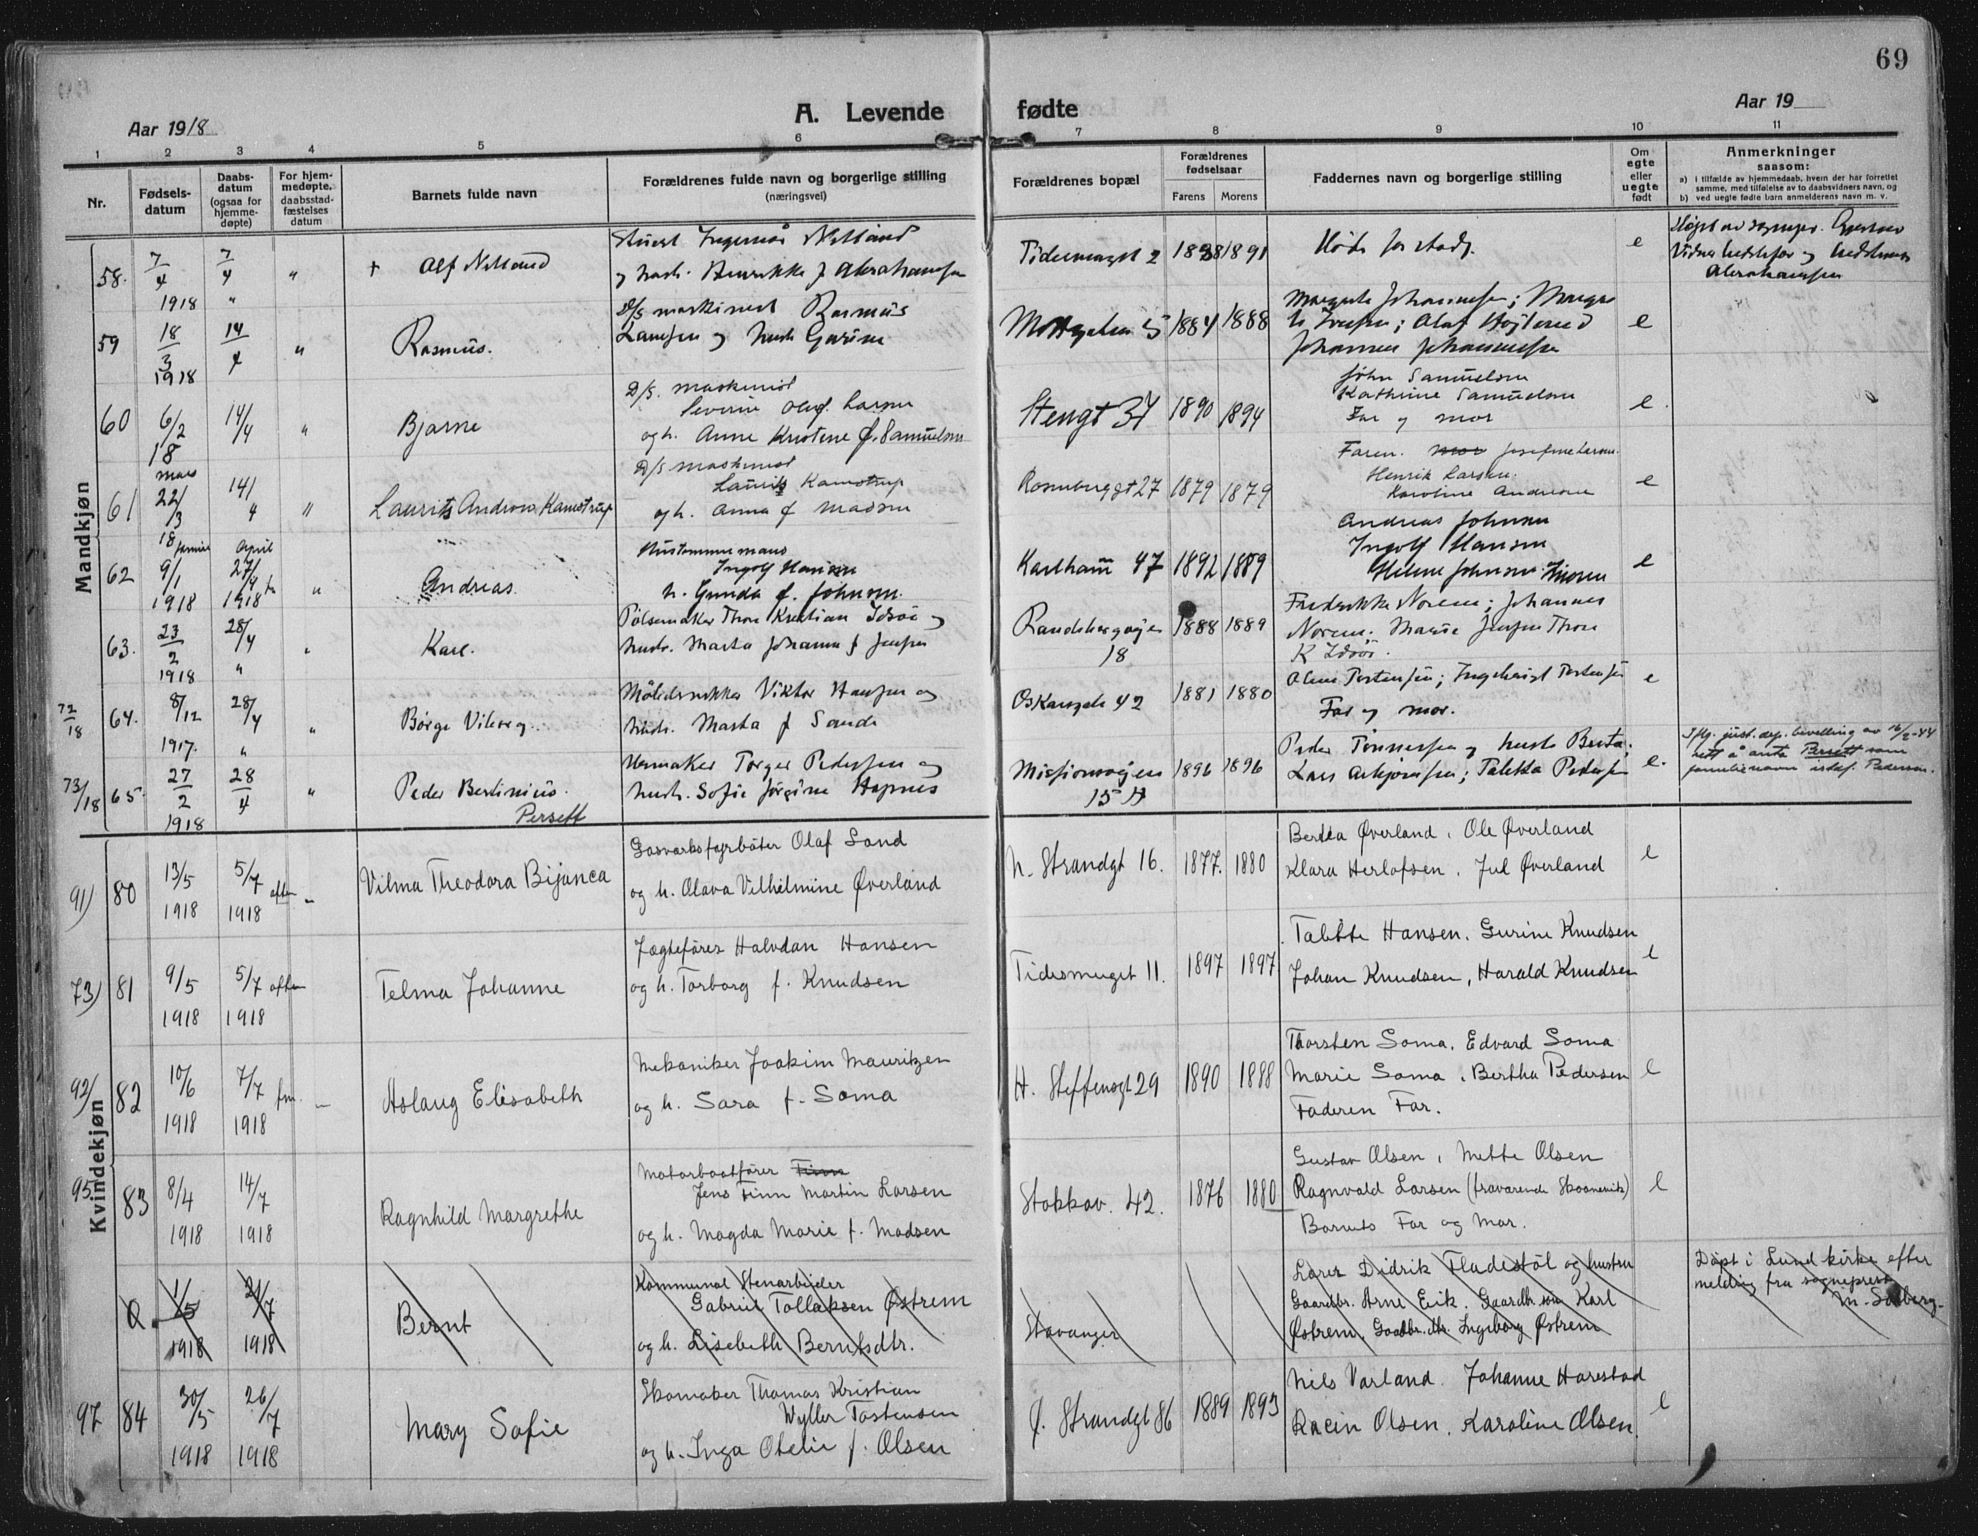 69
A. Levende fødte
Aar 1918
Aar 19
1 2 3 4 5 6 7 8 9 10 11
Nr.
Fødsels-
datum
Daabs-
datum
(ogsaa for
hjemme-
døpte)
For hjem-
medøpte,
daabsstad-
fæstelses
datum
Barnets fulde navn
Forældrenes fulde navn og borgerlige stilling
(næringsvei)
Forældrenes bopæl
Forældrenes
fødselsaar
Farens Morens
Faddernes navn og borgerlige stilling
Om
egte
eller
uegte
født
Anmerkninger
saasom:
a) i tilfælde av hjemmedaab, hvem der har forrettet
samme, med tilføielse av to daabsvidners navn, og
b) ved uegte fødte barn anmelderens navn m. v.
Mandkjøn
58. 7/4 1918 7/4 " "
+ Alf Nilland
og hustr. Henrikke f Abrahamsen
Tidemengt 2 1891
e
Abrahamsen
59 18/3 1918 14/4 "
Rasmus.
D/S maskinist Rasmus
og hustr.
5 1884 1888
Johannes Johannessen
e
60 6/2 18 14/4 "
Bjarne
D/S. maskinist
Severin Oluf Larsen
og h. Anne Kristine f. Samuelsen
Stengt 37 1890 1894
John Samuelsen
Kathrine Samuelsen
Far og mor
e
61 mars 22/3 18 14/4 "
Laurits Andreas Kamstrup
D/S maskinist
Laurits Kamstrup
og h. Anna f Madsen
Rosenberggt 27 1879 1879
Faren. mor Josefine Larsen.
Henrik Larsen.
Karoline Andersen
e
62 9/1 1918 April 27/4 1918 "
Andreas
Ingolf Hansen
h. Gunda f. Johnsen.
Karlham 47 1892 1889
Andreas Johnsen
Ingolf Hansen
Helene Johnsen
e
63. 23/2 1918 28/4 "
Karl.
Pølsemaker Thore Kristian Idsøe og
hustr. Marta Johanna f Jensen
Randebergveien 18 1888 1889
Fredrikke Norem; Johannes
Norem; Marie Jensen Thore
K Idsøe.
72/18 64. 8/12 1917. 28/4 " "
Børge Viborg.
Viktor Hansen og
hustr. Marta f Sande
Oskarsgate 42 1881 1880
Far og mor.
e
73/18 65. 27/2 1918 28/4 "
Peder Bertinius.
Persett
Urmaker Torger Pedersen og
hustr. Sofie Jørgine Hapnes
Missionsveien 15 1896 1896
Peder Tønnessen og hustr Berta;
Lars Asbjørnsen; Talette Pedersen
e.
Iflg. just. dep. bevilling av 16/2-44
rett å anta Persett som
familienavn istef. Pedersen.
Kvindekjøn
91) 80 13/5 1918 5/7 1918 efterm
Vilma Theodora Bijanca
Gasverksfyrbøter Olaf Sand
og h. Olava Vilhelmine Øverland
N. Strandgt 16. 1877. 1880
Bertha Øverland, Ole Øverland
Klara Herlofsen, Jul Øverland
e
73) 81 9/5 1918 5/7 1918 efterm
Telma Johanne
Jægtefører Halvdan Hansen
og h. Torborg f. Knudsen
Tidesmuget 11. 1897 1897
Talette Hansen. Gurine Knudsen
Johan Knudsen, Harald Knudsen
e
92/ 82 10/6 1918 7/7 1918 fm.
Aslaug Elisabeth
Mekaniker Joakim Mauritzen
og h. Sara f. Soma
H. Steffensgt 29 1890 1888
Thorsten Soma. Edvard Soma
Marie Soma, Bertha Pedersen
Faderen Far.
e
95 83 8/4 1918 14/7 1918
Ragnhild Margrethe
Motorbaatfører Finn
Jens Finn Martin Larsen
og h. Magda Marie f. Madsen
Stokkav. 42. 1876 1880
Gustav Olsen, Mette Olsen
Ragnvald Larsen (fraværende
Barnets Far og Mor.
e
1/5 1918 21/7 1918
Bernt
Kommunal Stenarbeider
Gabriel Tollaksen Østrem
og h. Lisebeth Berntsdtr.
Stavanger
Lærer Didrik Fladestøl og hustru
Gaardbr. Arne Eik. Gaardbr. søn Karl
Østrem. Gaardbr. dtr. Ingeborg Østrem
Døpt i Lund kirke efter
melding fra sogneprest
M. Solberg.
97 84 30/5 1918 26/7 1918
Mary Sofie
Skomaker Thomas Kristian
Wyller Tostensen
og h. Inga Otelie f. Olsen
Ø. Strandgt 86 1889 1893
Nils Varland. Johanne Harestad
Racin Olsen. Karoline Olsen.
e